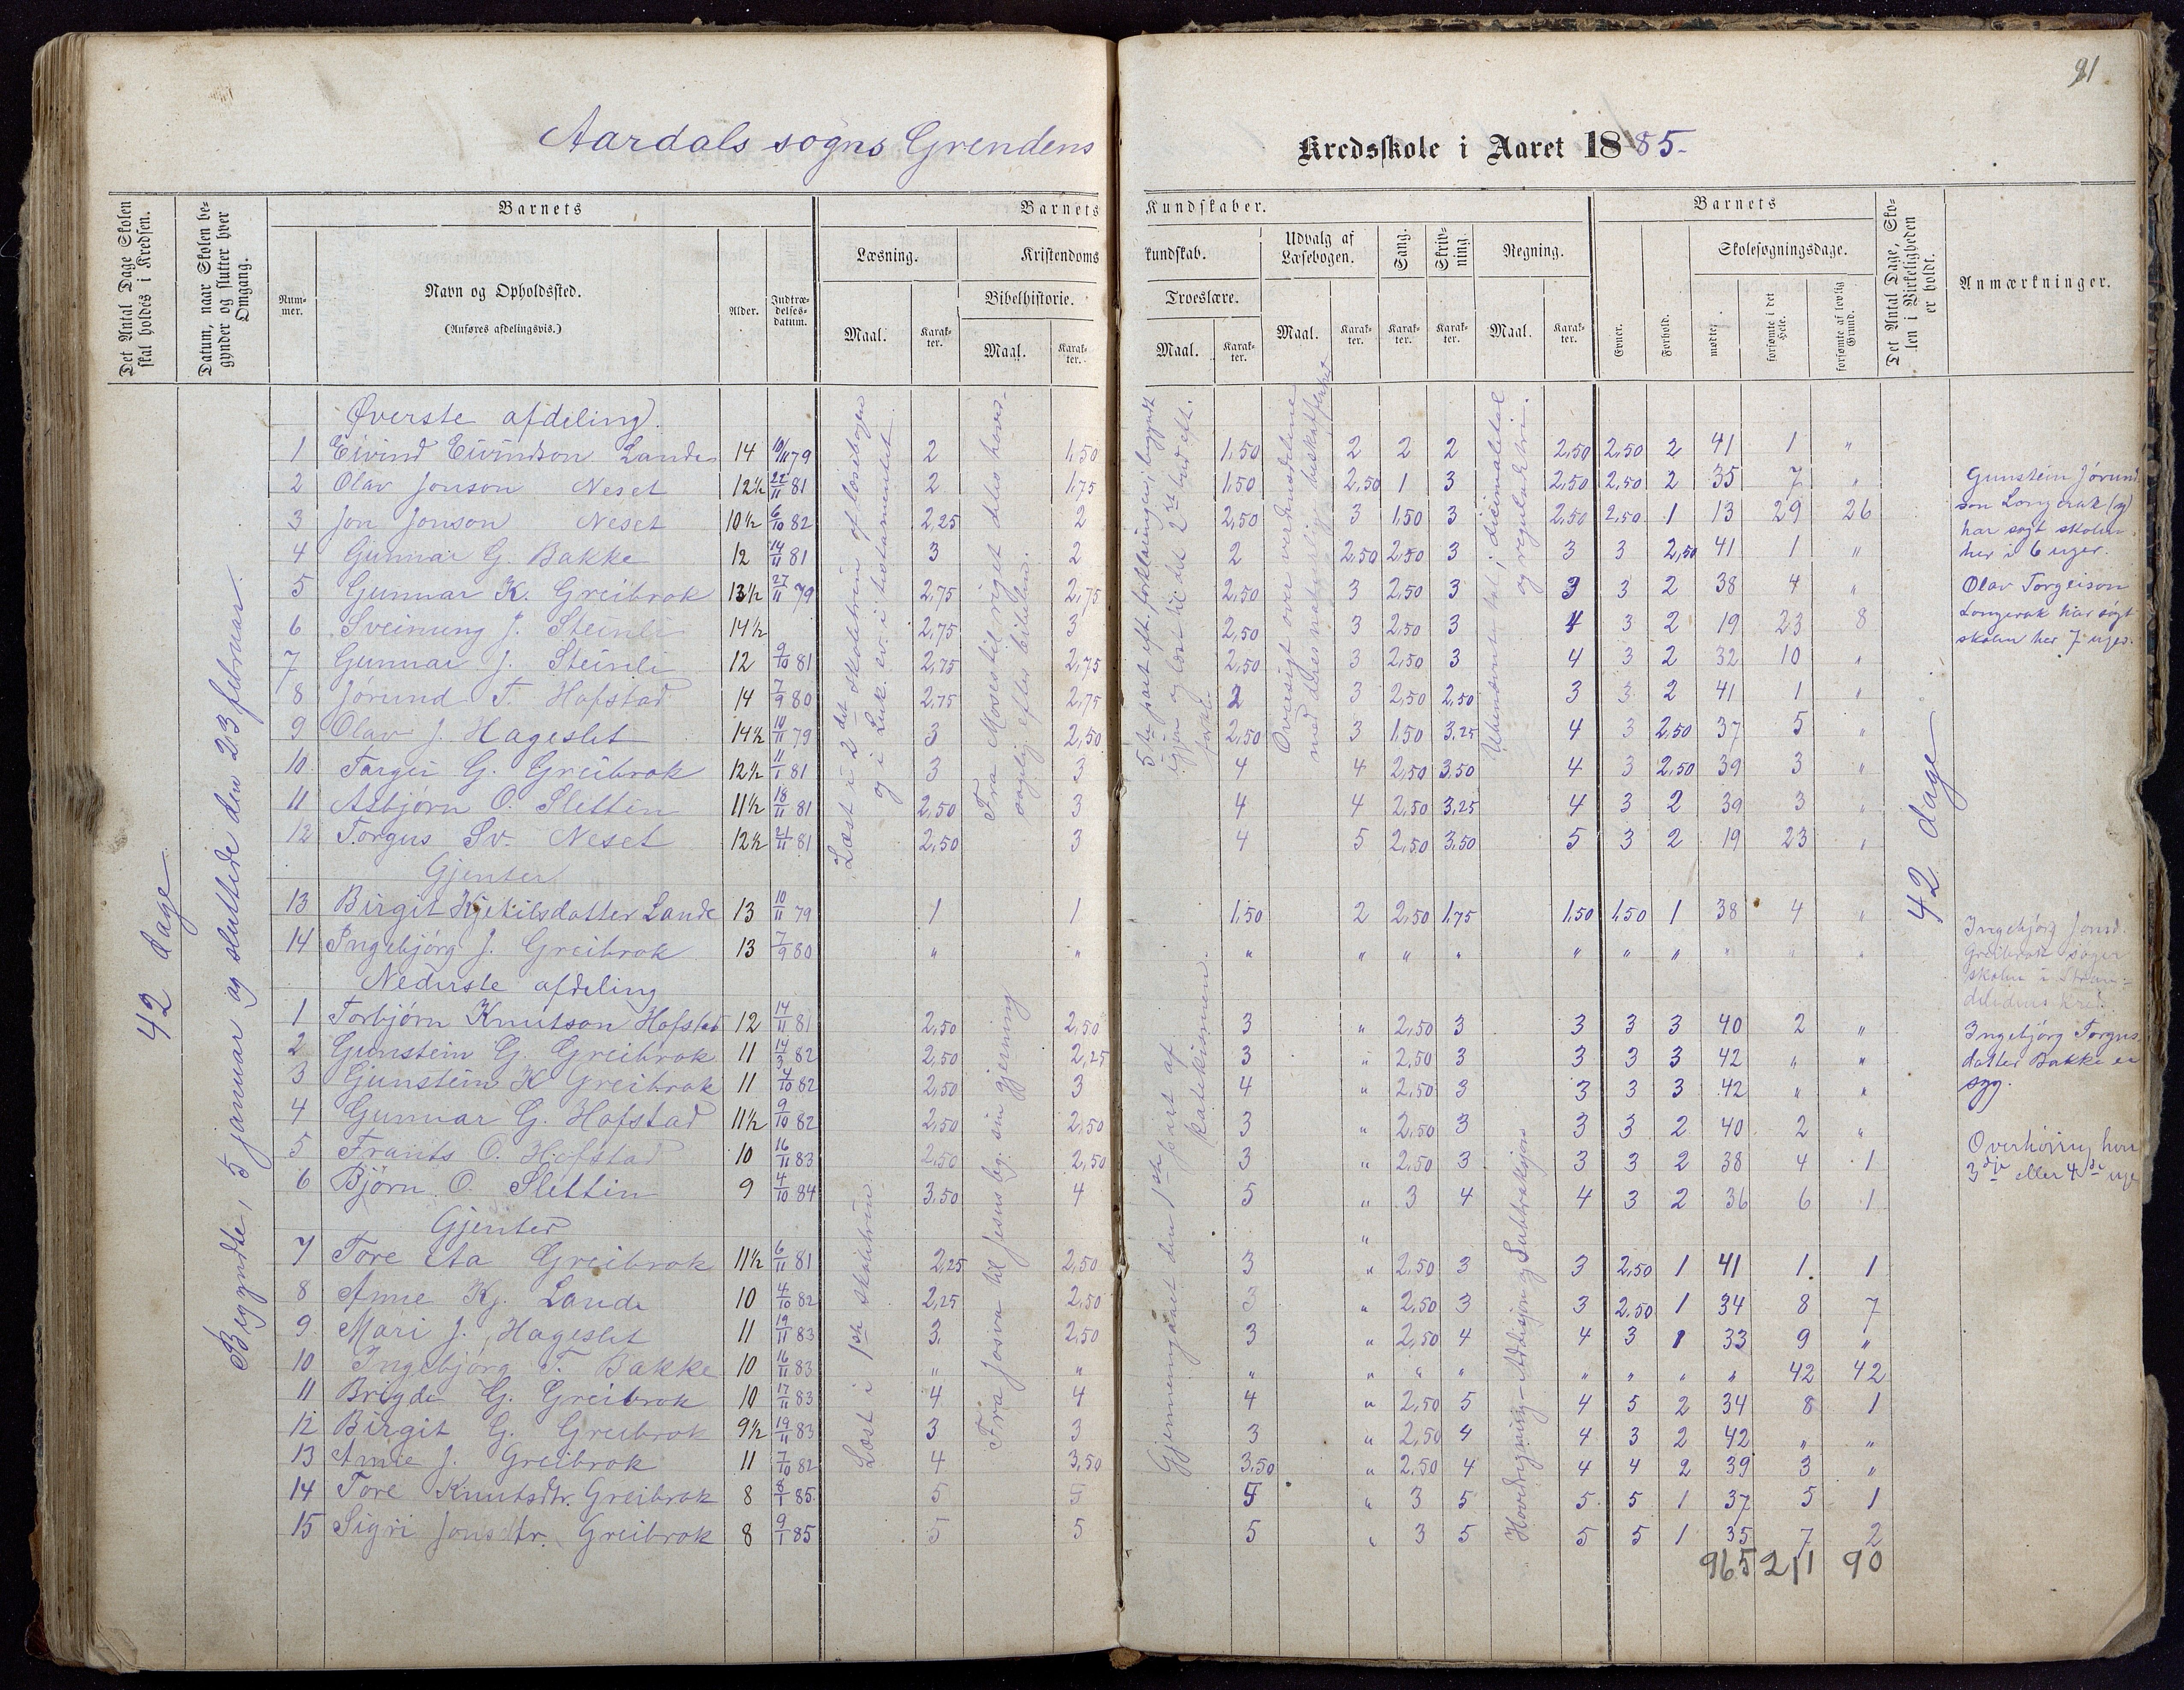 91
Aardals sogns Grendens Kredsskole i Aaret 1885-
Det Antal Dage Skolen skal holdes i Kredsen.
Datum, naar Skolen begynder og slutter hver Omgang.
Barnets
Nummer.
Navn og Opholdssted.
(Anføres afdelingsvis.)
Alder.
Indtrædelsesdatum.
Barnets Kundskaber.
Læsning.
Maal.
Karakter.
Kristendomskundskab.
Bibelhistorie.
Maal.
Karakter.
Troeslære.
Maal.
Karakter.
Udvalg af Læsebogen.
Maal.
Karakter.
Sang.
Karakter.
Skrivning.
Karakter.
Regning.
Maal.
Karakter.
Barnets
Evner.
Forhold.
Skolesøgningsdage.
mødte.
forsømte i det Hele.
forsømte af lovlig Grund.
Det Antal Dage, Skolen i Virkeligheden er holdt.
Anmærkninger.
42 dage
Begyndte, 5 januar og sluttede den 23 februar.
Øverste afdeling.
1 Eivind Eivindson Lande 14 10/11 79 2 1,50 1,50 2 2 2 2,50 2,50 2 41 1 "
2 Olav Jonson Neset 12½ 22/11 81 2 1,75 1,50 2,50 1 3 2,50 2,50 2 35 7 "
3 Jon Jonson Neset 10½ 6/10 82 2,25 2 2,50 3 1,50 3 2,50 2,50 1 13 29 26
4 Gunnar G. Bakke 12 14/11 81 3 2 2 2,50 2,50 3 3 3 2,50 41 1 "
5 Gunnar K. Greibrok 13½ 27/11 79 2,75 2,75 2,50 3 2,50 3 3 3 2 38 4 "
6 Sveinung J. Steinli 14½ 2,75 3 2,50 3 2,50 3 4 3 2 19 23 8
7 Gunnar J. Steinli 12 9/10 81 2,75 2,75 2,50 3 2,50 3 4 3 2 32 10 "
8 Jørund T. Hofstad 14 7/9 80 2,75 2,75 2 3 2,50 2,50 3 3 2 41 1 "
9 Olav J. Hageslet 14½ 10/11 79 3 2,50 2,50 3 1,50 3,25 4 3 2,50 37 5 "
10 Targei G. Greibrok 12½ 11/1 81 3 3 4 4 2,50 3,50 4 3 2,50 39 3 "
11 Asbjørn O. Slettin 11½ 18/11 81 2,50 3 4 4 2,50 3,25 4 3 2 39 3 "
12 Torgus Sv. Neset 12½ 21/11 81 2,50 3 4 5 2,50 3,50 5 3 2 19 23 "
Gjenter
13 Birgit Kjetilsdatter Lande 13 10/11 79 1 1 1,50 2 2,50 1,75 1,50 1,50 1 38 4 "
14 Ingebjörg J. Greibrok 13 7/9 80 " " " " " " " " " " " "
Nederste afdeling
1 Torbjørn Knutson Hofstad 12 14/11 81 2,50 2,50 3 " 2,50 3 3 3 3 40 2 "
2 Gunstein G. Greibrok 11 14/3 82 2,50 2,25 3 " 2,50 3 3 3 3 42 " "
3 Gjunstein K Greibrok 11 4/10 82 2,50 3 4 " 2,50 3 3 3 3 42 " "
4 Gunnar G. Hofstad 11½ 9/10 82 2,50 2,50 3 " 2,50 3 3 3 2 40 2 "
5 Frants O. Hofstad 10 16/11 83 2,50 2,50 3 " 2,50 3 3 3 2 38 4 1
6 Björn O. Slettin 9 4/10 84 3,50 4 5 " 3 4 4 3 2 36 6 1
Gjenter "
7 Tore Aa Greibrok 11½ 6/11 81 2,25 2,50 3 " 2,50 3 3 2,50 1 41 1 1
8 Anne Kj. Lande 10 4/10 82 2,25 2,50 3 " 2,50 3 3 2,50 1 34 8 7
9 Mari J. Hageslet 11 19/11 83 3 2,50 3 " 2,50 4 4 3 1 33 9 "
10 Ingebjörg T. Bakke 10 16/11 83 " " " " " " " " " " 42 42
11 Brigde G. Greibrok 10 17/11 83 4 4 4 " 2,50 5 4 5 2 34 8 1
12 Birgit G. Greibrok 9½ 19/11 83 3 3 3 " 2,50 4 4 3 2 42 " "
13 Anne J. Greibrok 11 7/10 82 4 3,50 3,50 " 2,50 4 4 4 2 39 3 "
14 Tore Knutsdtr. Greibrok 8 8/1 85 5 5 5 " 3 5 5 5 1 37 5 1
15 Sigri Jonsdtr. Greibrok 8 9/1 85 5 5 5 " 3 5 5 5 1 35 7 2
965 211 90
Læst i 2det skoletrin af læsebogen
og i Luk. ev. i testamentet
Læst i 1ste skoletrin
Fra Moses til riget deles
efter bibelen.
Fra Josva til Jesus beg. sin gjerning
5te part eft. forklaringen, begyndt
igjen og læst til det 2det bud eft.
forkl.
Gjennemgaaet den 1ste part af
katekismen.
Oversigt over verdensdelene
med deres
Ubenævnte tal i decimaltal
og reguladetri.
Hovedregning - Addisjon og Subtraksjon
42 dage
Gunstein Jørund-
son Longerak (9)
har søgt skolen
her i 6 uger.
Olav Torgeison
Longerak har søgt
skolen her 7 uger.
Ingebjörg Jonsd.
Greibrok søger
skolen i
Ingebjörg Torgus
datter Bakke er
syg.
Overhøring hver
3die eller 4de uge